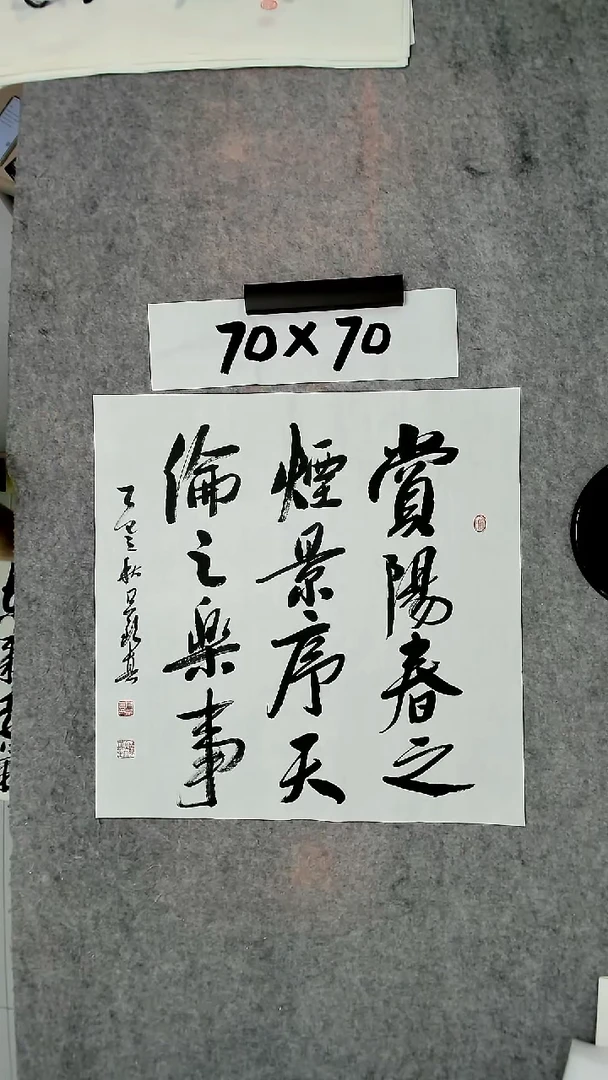 70×70
賞陽春之
煙景序天
倫之樂事
乙巳秋